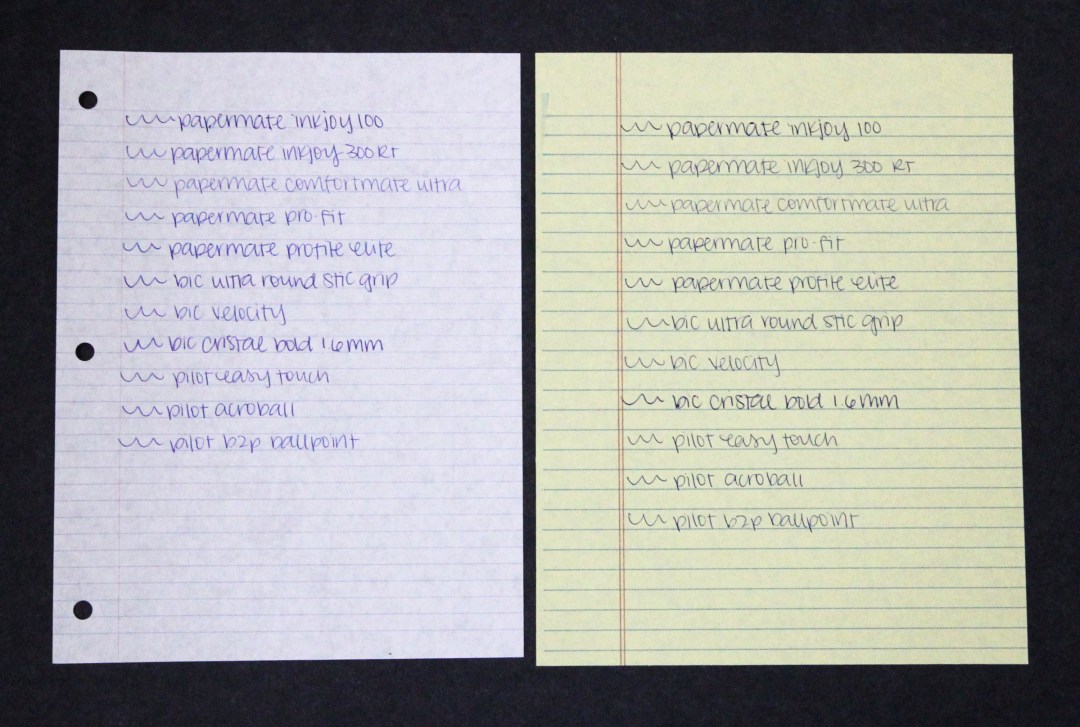 papermate inkjoy 100
papermate inkjoy 300 RT
papermate comfortmate ultra
papermate pro-fit
papermate profile elite
bic ultra round stic grip
bic velocity
bic cristal bold 1.6mm
pilot easy touch
pilot acroball
pilot b2p ballpoint
papermate inkjoy 100
papermate inkjoy 300 RT
papermate comfortmate ultra
papermate pro-fit
papermate profile elite
bic ultra round stic grip
bic velocity
bic cristal bold 1.6mm
pilot easy touch
pilot acroball
pilot b2p ballpoint